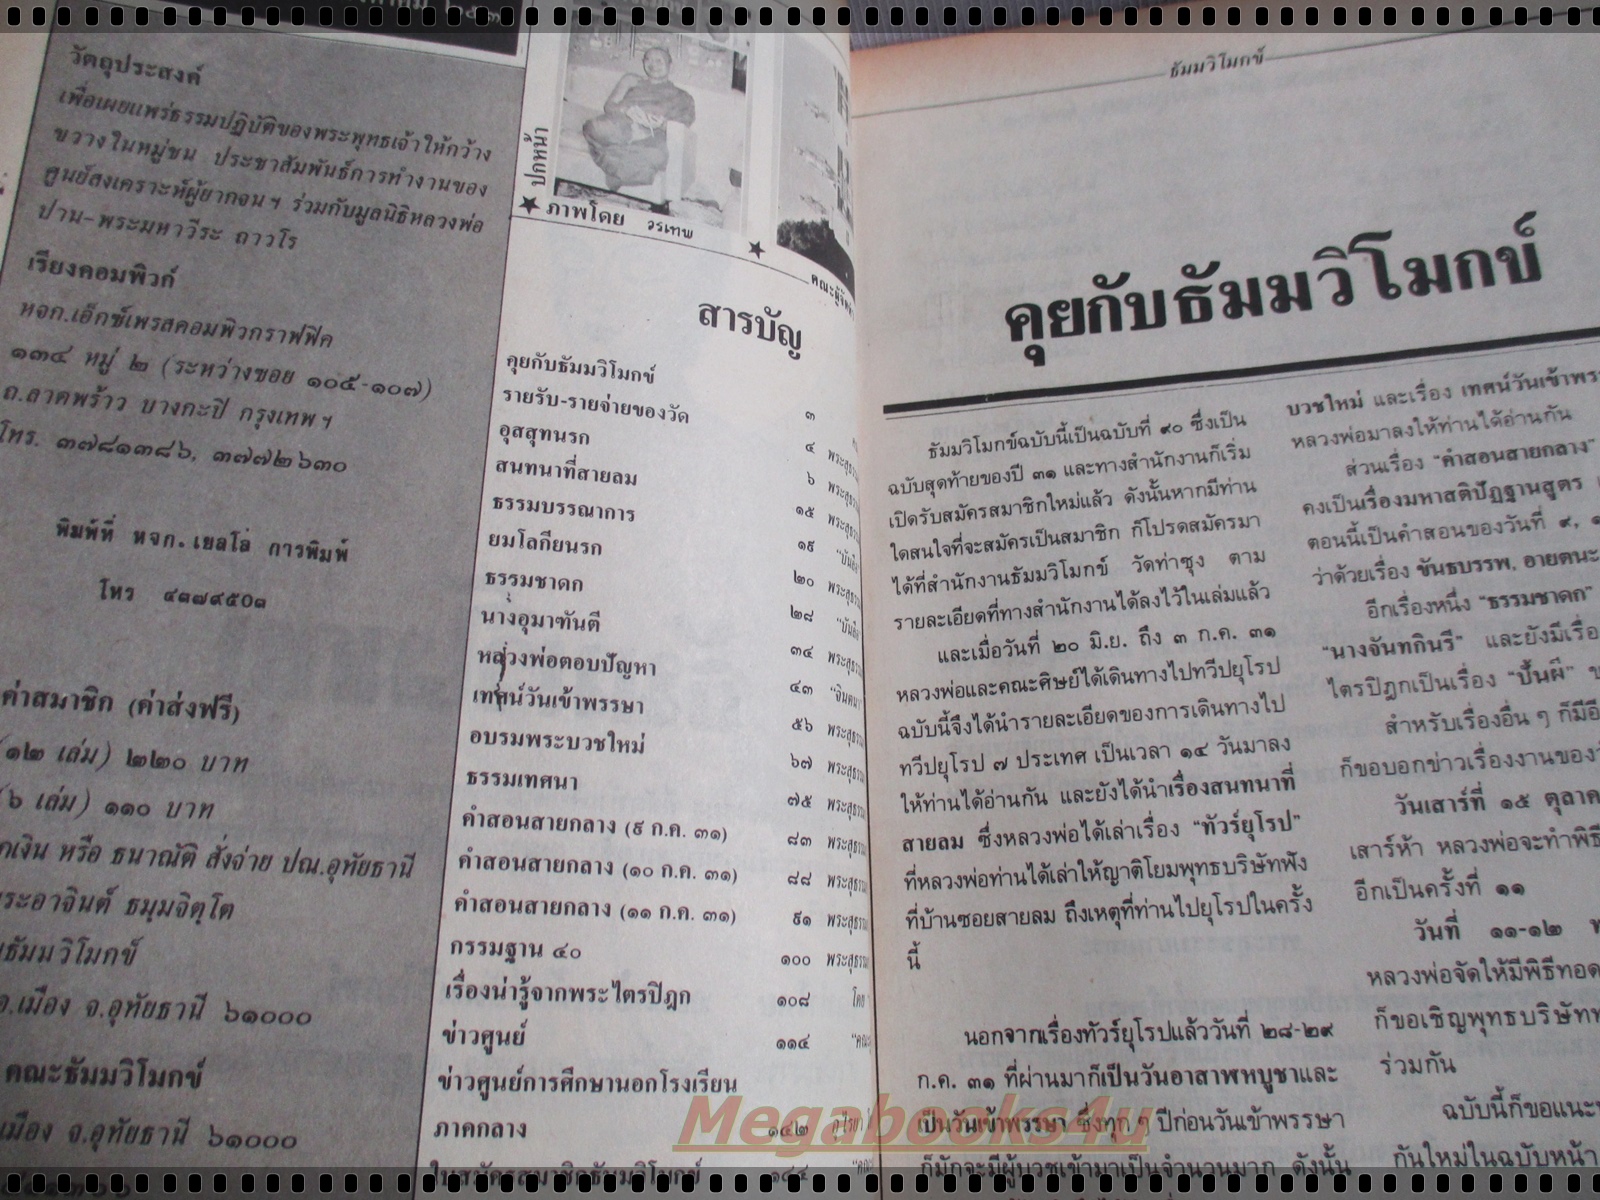 วัตถุประสงค์
เพื่อเผยแพร่ธรรมปฏิบัติของพระพุทธเจ้าให้กว้าง
ขวางในหมู่ชน ประชาสัมพันธ์การทำงานของ
ศูนย์สงเคราะห์ผู้ยากจนฯ ร่วมกับมูลนิธิหลวงพ่อ
ปาน-พระมหาวีระ ถาวโร
เรียงคอมพิวก์
หจก.เอ็กซ์เพรสคอมพิวกราฟฟิค
๑๓๔ หมู่ ๒ (ระหว่างซอย ๑๐๕-๑๐๗)
ถ.ลาดพร้าว บางกะปิ กรุงเทพฯ
โทร. ๓๗๘๑๓๘๖, ๓๗๗๒๖๓๐
พิมพ์ที่ หจก. เยลโล่ การพิมพ์
โทร ๔๓๗๙๕๐๓
ค่าสมาชิก (ค่าส่งฟรี)
(๑๒ เล่ม) ๒๒๐ บาท
(๖ เล่ม) ๑๑๐ บาท
หรือ ธนาณัติ สั่งจ่าย ปณ.อุทัยธานี
ระอาจินต์ ธมฺมจิตฺโต
ธัมมวิโมกข์
อ.เมือง จ.อุทัยธานี ๖๑๐๐๐
คณะธัมมวิโมกข์
เมือง จ.อุทัยธานี ๖๑๐๐๐
ปกหน้า
ภาพโดย วรเทพ
สารบัญ
คุยกับธัมมวิโมกข์ ๓
รายรับ-รายจ่ายของวัด ๔
อุสสุทนรก ๖
สนทนาที่สายลม ๑๕
ธรรมบรรณาการ ๑๙
ยมโลกียนรก ๒๐
ธรรมชาดก ๒๘
นางอุมาทันตี ๓๔
หลวงพ่อตอบปัญหา ๔๓
เทศน์วันเข้าพรรษา ๕๖
อบรมพระบวชใหม่ ๖๗
ธรรมเทศนา ๗๕
คำสอนสายกลาง (๙ ก.ค. ๓๑) ๘๓
คำสอนสายกลาง (๑๐ ก.ค. ๓๑) ๘๘
คำสอนสายกลาง (๑๑ ก.ค. ๓๑) ๙๑
กรรมฐาน ๔๐ ๑๐๐
เรื่องน่ารู้จากพระไตรปิฎก ๑๐๘
ข่าวศูนย์ ๑๑๔
ข่าวศูนย์การศึกษานอกโรงเรียน
ภาคกลาง ๑๔๒
ใบสมัครสมาชิกธัมมวิโมกข์ ๑๔๔
ธัมมวิโมกข์
คุยกับธัมมวิโมกข์
ธัมมวิโมกข์ฉบับนี้เป็นฉบับที่ ๙๐ ซึ่งเป็น
ฉบับสุดท้ายของปี ๓๑ และทางสำนักงานก็เริ่ม
เปิดรับสมัครสมาชิกใหม่แล้ว ดังนั้นหากมีท่าน
ใดสนใจที่จะสมัครเป็นสมาชิก ก็โปรดสมัครมา
ได้ที่สำนักงานธัมมวิโมกข์ วัดท่าซุง ตาม
รายละเอียดที่ทางสำนักงานได้ลงไว้ในเล่มแล้ว
และเมื่อวันที่ ๒๐ มิ.ย. ถึง ๓ ก.ค. ๓๑
หลวงพ่อและคณะศิษย์ได้เดินทางไปทวีปยุโรป
ฉบับนี้จึงได้นำรายละเอียดของการเดินทางไป
ทวีปยุโรป ๗ ประเทศ เป็นเวลา ๑๔ วันมาลง
ให้ท่านได้อ่านกัน และยังได้นำเรื่องสนทนาที่
สายลม ซึ่งหลวงพ่อได้เล่าเรื่อง "ทัวร์ยุโรป"
ที่หลวงพ่อท่านได้เล่าให้ญาติโยมพุทธบริษัทฟัง
ที่บ้านซอยสายลม ถึงเหตุที่ท่านไปยุโรปในครั้ง
นี้
นอกจากเรื่องทัวร์ยุโรปแล้ววันที่ ๒๘-๒๙
ก.ค. ๓๑ ที่ผ่านมาก็เป็นวันอาสาฬหบูชาและ
เป็นวันเข้าพรรษา ซึ่งทุก ๆ ปีก่อนวันเข้าพรรษา
ก็มักจะมีผู้บวชเข้ามาเป็นจำนวนมาก ดังนั้น
บวชใหม่ และเรื่อง เทศน์วันเข้าพร
หลวงพ่อมาลงให้ท่านได้อ่านกัน
ส่วนเรื่อง "คำสอนสายกลาง"
คงเป็นเรื่องมหาสติปัฏฐานสูตร
ตอนนี้เป็นคำสอนของวันที่ ๙,
ว่าด้วยเรื่อง ขันธบรรพ, อายตนะ
อีกเรื่องหนึ่ง "ธรรมชาดก"
"นางจันทกินรี" และยังมีเรื่อ
ไตรปิฎกเป็นเรื่อง "ปั้นผี"
สำหรับเรื่องอื่น ๆ ก็มีอี
ก็ขอบอกข่าวเรื่องงานของ
วันเสาร์ที่ ๑๕ ตุลาค
เสาร์ห้า หลวงพ่อจะทำพิธี
อีกเป็นครั้งที่ ๑๑
วันที่ ๑๑-๑๒ พ
หลวงพ่อจัดให้มีพิธีทอด
ก็ขอเชิญพุทธบริษัทท
ร่วมกัน
ฉบับนี้ก็ขอแนะ
กันใหม่ในฉบับหน้า
Megabooks4u